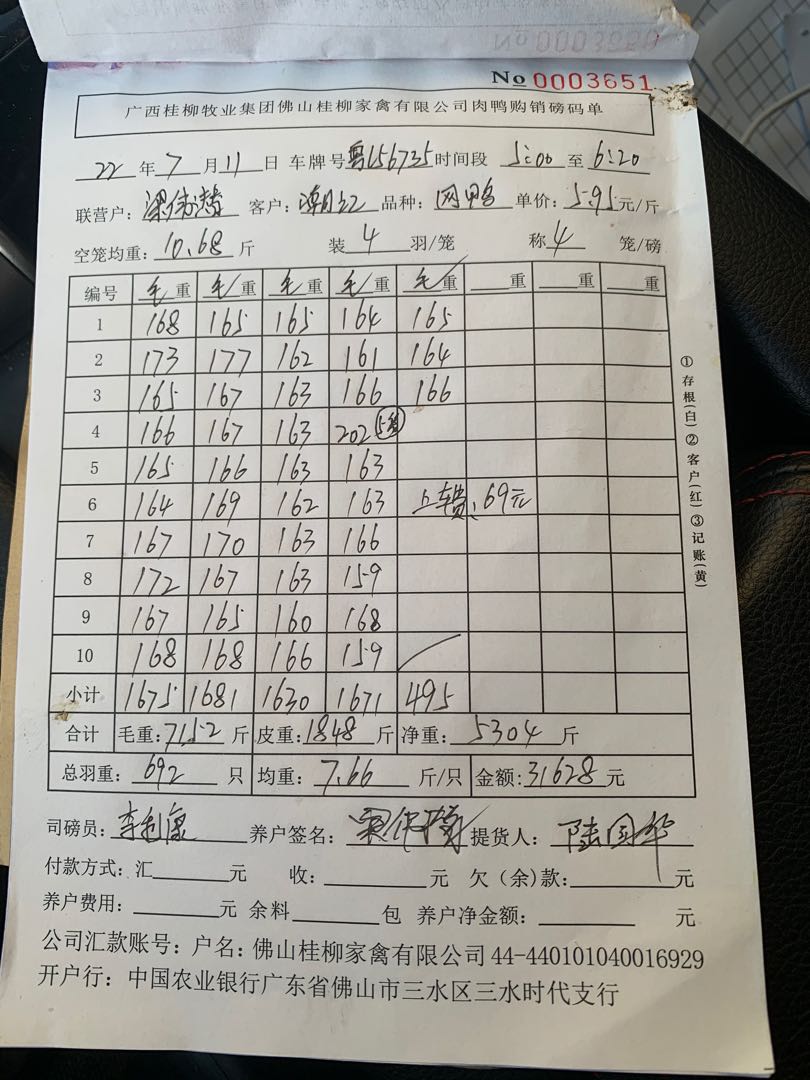 No 0003651
广西桂柳牧业集团佛山桂柳家禽有限公司肉鸭购销磅码单
22 年 7 月 11 日 车牌号 粤L56735 时间段 5:00 至 6:20
联营户: 梁伟 客户: 潮江 品种: 网鸭 单价: 5.95 元/斤
空笼均重: 10.68 斤 装 4 羽/笼 称 4 笼/磅
编号 毛重 毛重 毛重 毛重 毛重 重 重 重
1 168 165 165 164 165
2 173 177 162 161 164
3 165 167 163 166 166
4 166 167 163 202
5 165 166 163 163
6 164 169 162 163 上车费: 69元
7 167 170 163 166
8 172 167 163 159
9 167 165 160 168
10 168 168 166 159
小计 1675 1681 1630 1671 495
合计 毛重: 7152 斤 皮重: 1848 斤 净重: 5304 斤
总羽重: 692 只 均重: 7.66 斤/只 金额: 31628 元
①存根(白)②客户(红)③记账(黄)
司磅员: 养户签名: 提货人: 陆国华
付款方式: 汇 元 收: 元 欠(余)款: 元
养户费用: 元 余料 包 养户净金额: 元
公司汇款账号: 户名: 佛山桂柳家禽有限公司 44-440101040016929
开户行: 中国农业银行广东省佛山市三水区三水时代支行